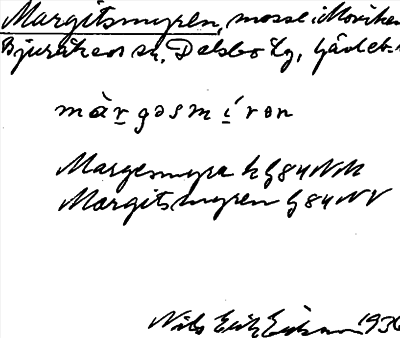 Margitsmyren, mosse i Moviken
Bjuråkers sn, Delsbo tg, Gävleb.
màr̲gəsmí̲rən
Margesmyra h G84NM
Margitsmyren G84NV
Nils Erik Eriksson 1936